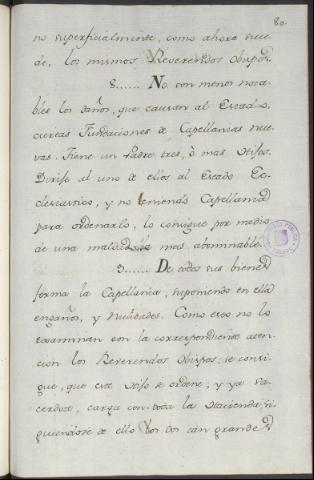 80.
no superficialmente, como ahora suce-
de, los mismos Reverendos Obispos.
8...... No son menos nota-
bles los daños, que causan al Estado,
ciertas Fundaciones de Capellanias nue-
vas. Tiene un Padre tres, ò mas Hijos.
Dirije al uno de ellos al Estado Ec-
clesiastico, y no teniendo Capellania
para ordenarlo, lo consigue por medio
de una maldad la mas abominable.
9...... De todos sus bienes
forma la Capellania, suponiendo en ella
engaños, y nulidades. Como esto no lo
examinan con la correspondiente aten-
cion los Reverendos Obispos; se consi-
gue, que este Hijo se ordene; y ya Sa-
cerdote, carga con toda la Hacienda; si-
guiendose de ello los dos tan grandes